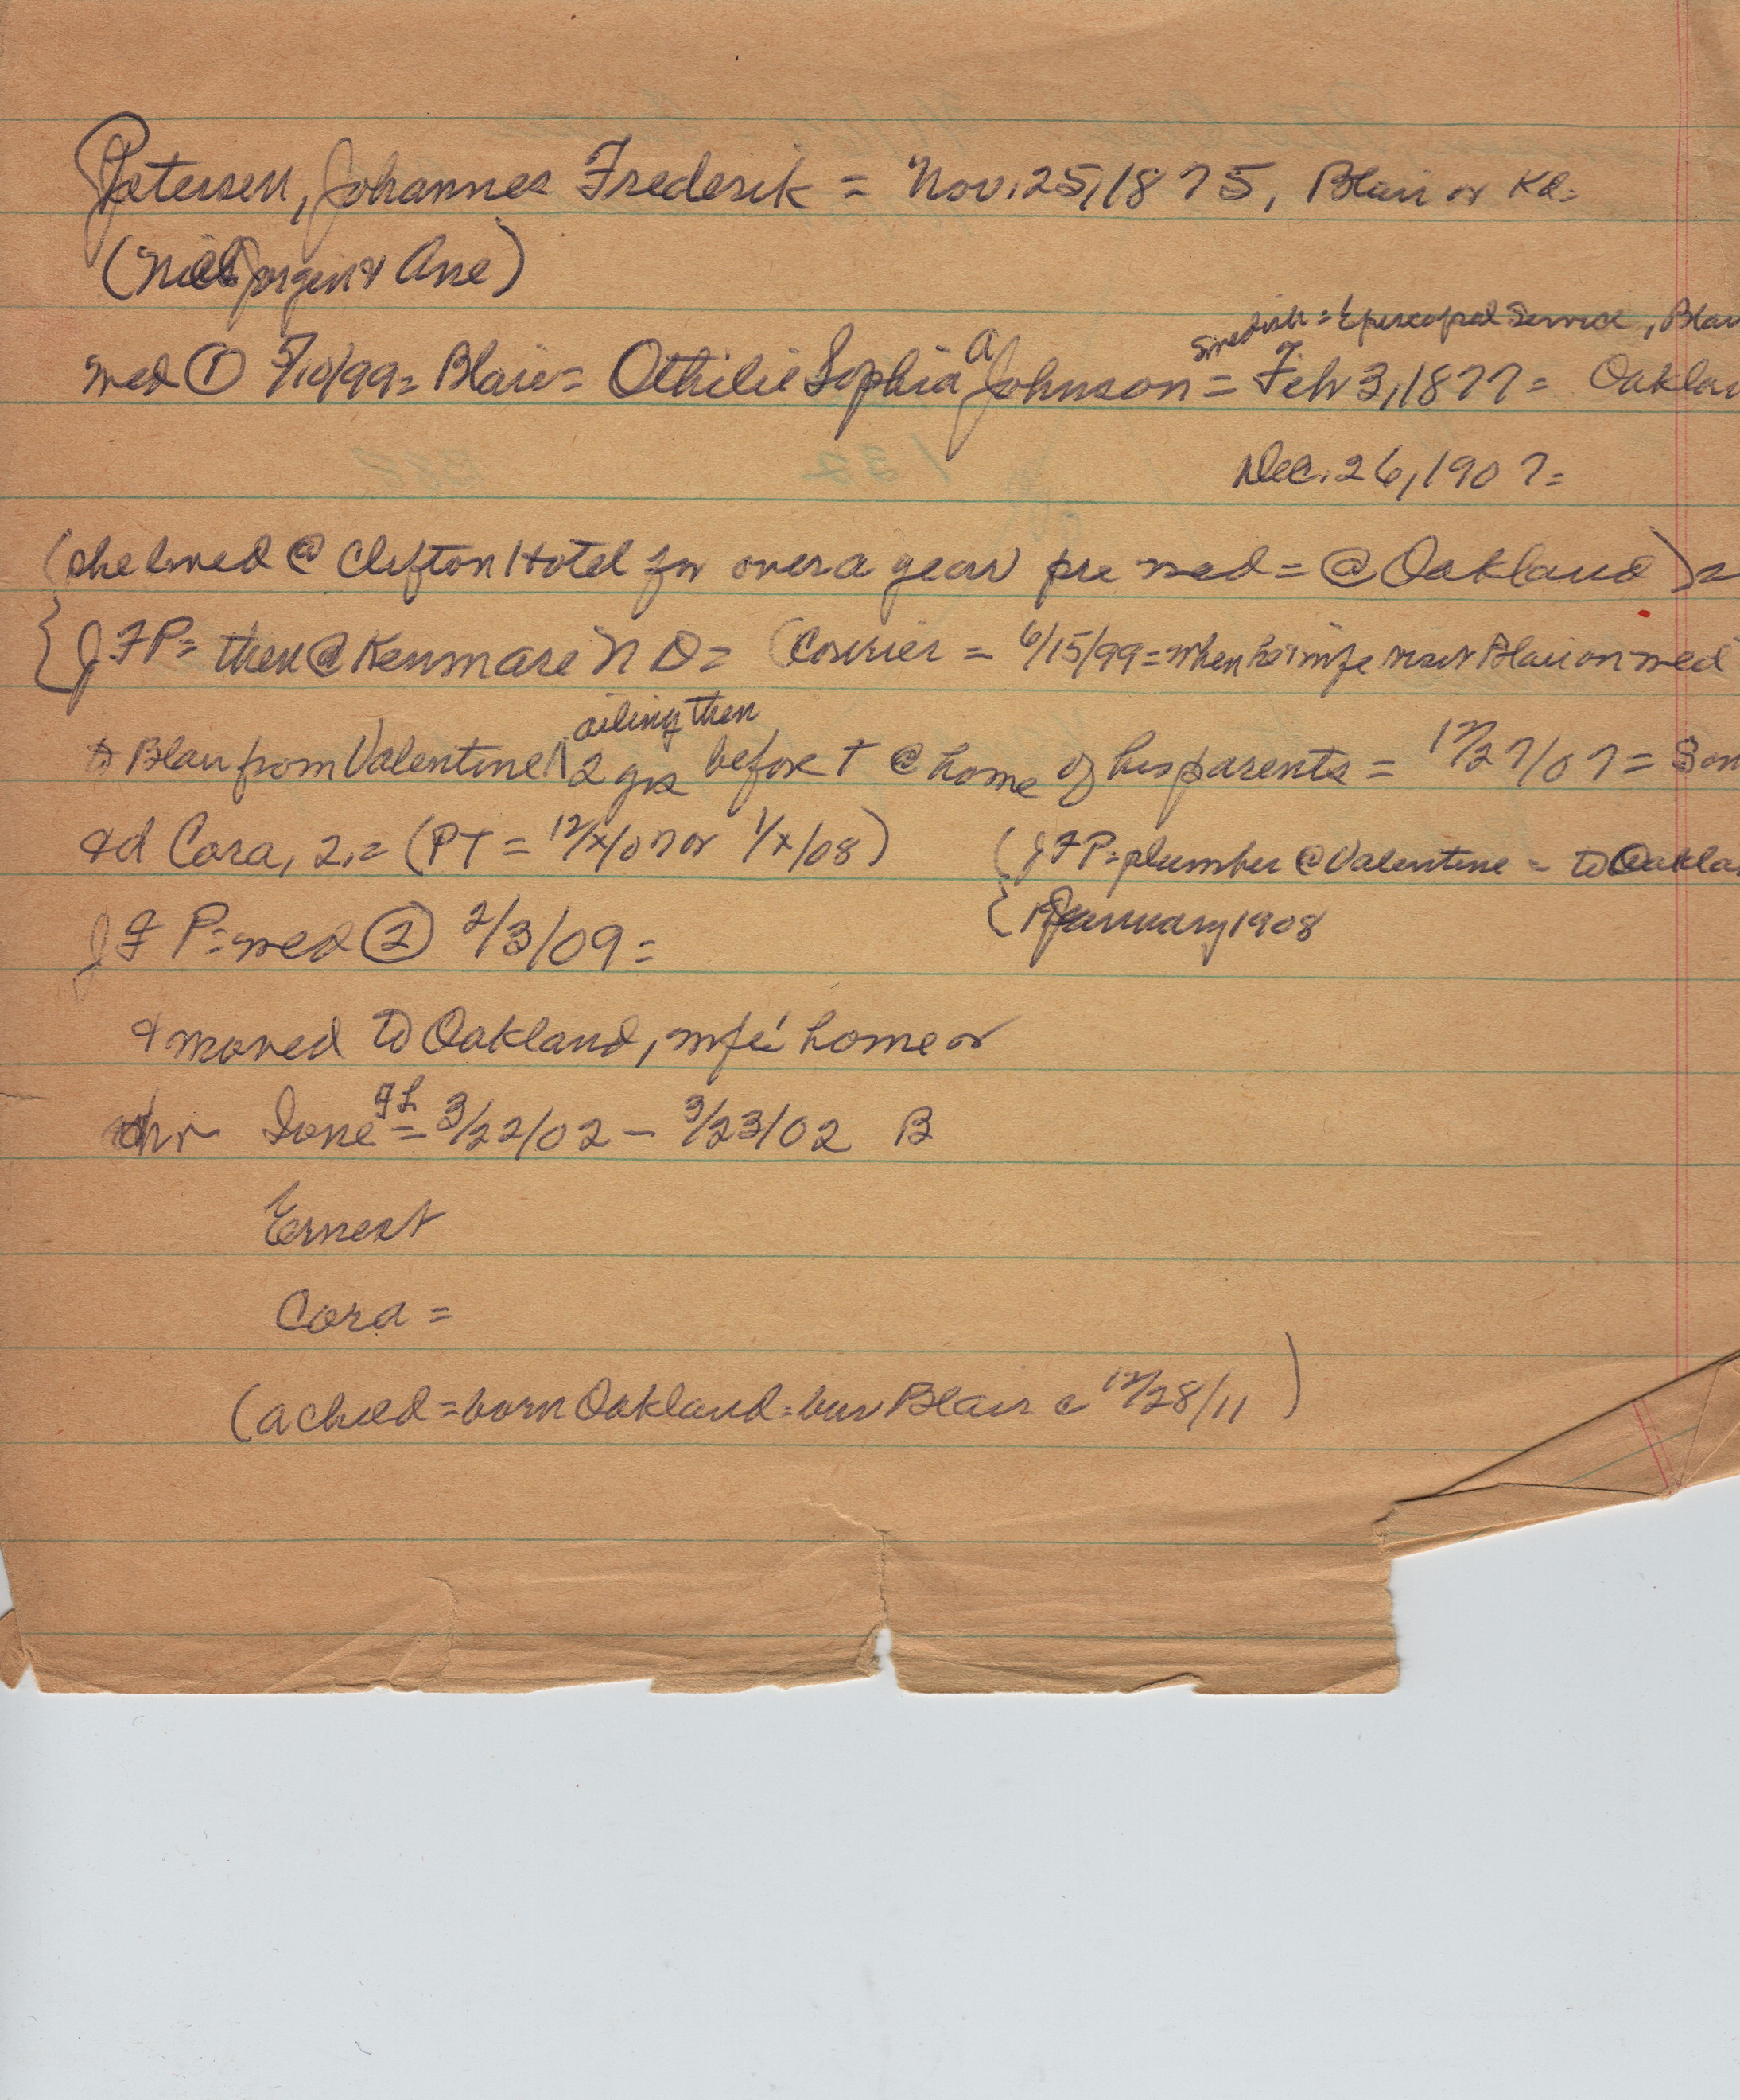 Petersen, Johannes Frederik = Nov. 25, 1875, Blair or Kd=
(Niels Jorgen & Ane)
Swedish = Episcopal Service, Blai
wed ① 5/10/99= Blair= Othilie Sophia A Johnson = Feb 3, 1877= Oaklan
Dec. 26, 1907=
(she lived @ Clifton Hotel for over a year pre wed = @ Oakland)=
JFP= then @ Kenmare ND= (Courier = 6/15/99= when he & wife visit Blair on wed
ailing then
to Blair from Valentine ^ 2 yrs before † @ home of his parents = 12/27/07= Son
& d Cora, 2,= (PT = 12/x/07 or 1/x/08)
(JFP= plumber @ Valentine = to Oaklan
January 1908
JFP= wed ② 2/3/09=
& moved to Oakland, wife's home or
chr Ione = 3/22/02 – 3/23/02 B
Ernest
Cora =
(a child = born Oakland= bur Blair c 12/28/11)